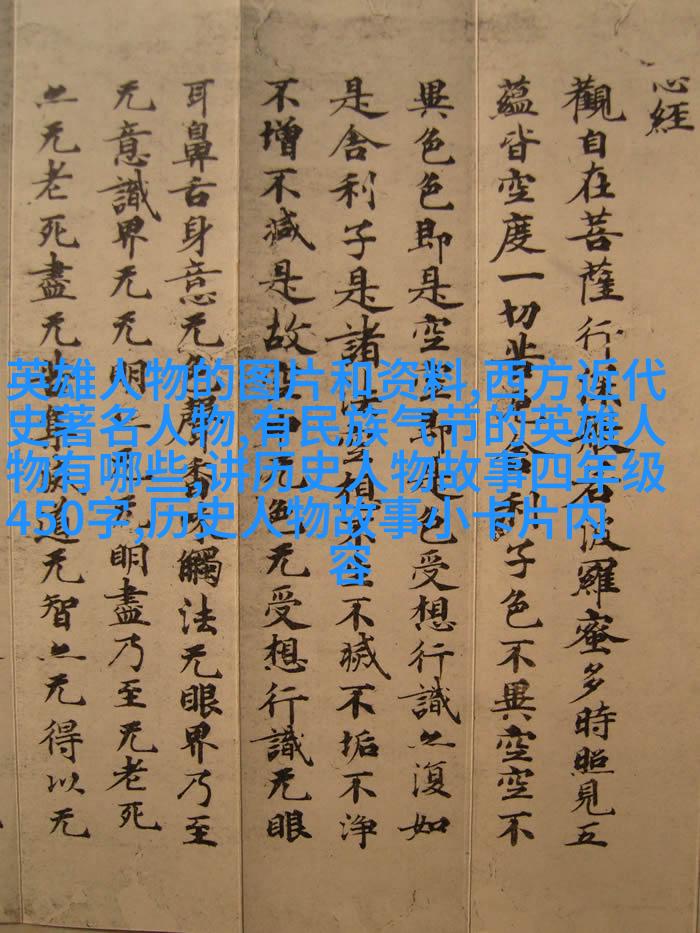 心經
觀自在菩薩行深般若波羅蜜多時照見五
蘊皆空度一切苦厄舍利子色不異空空不
異色色即是空空即是色受想行識亦復如
是舍利子是諸法空相不生不滅不垢不淨
不增不減是故空中无色无受想行識无眼
耳鼻舌身意无色聲香味觸法无眼界乃至
无意識界无无明亦无无明盡乃至无老死
亦无老死盡无苦集滅道无智亦无得以无
英雄人物的图片和资料,西方近代
史著名人物,有民族气节的英雄人
物有哪些,讲历史人物故事四年级
450字,历史人物故事小卡片内
容